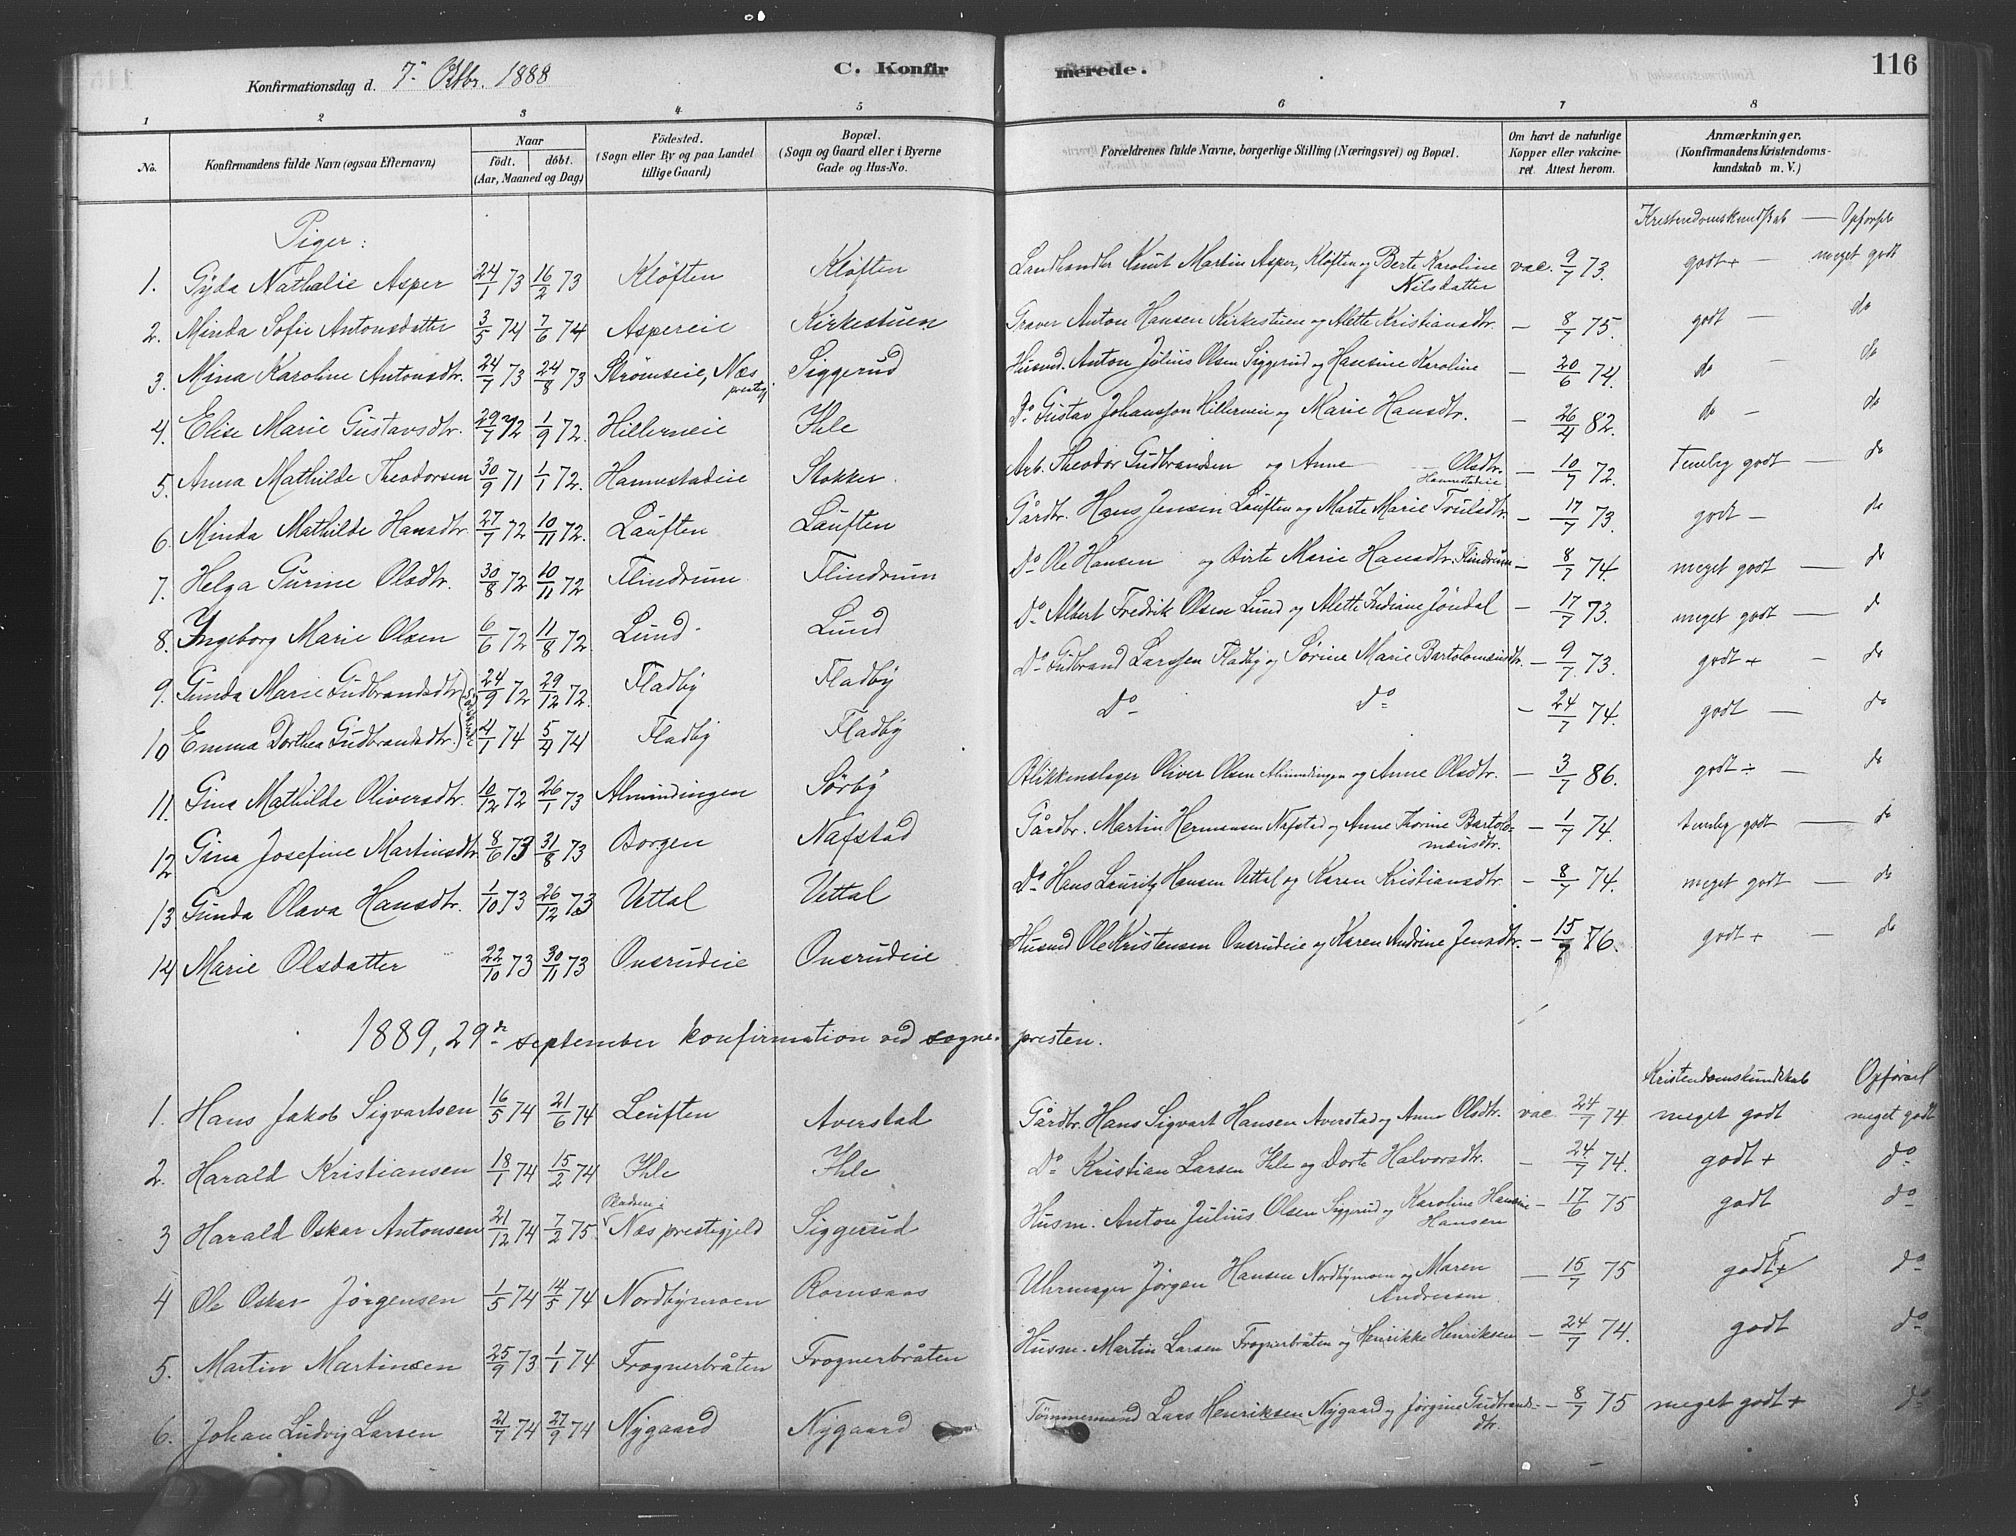 Konfirmationsdag d. 7de Oktbr. 1888 C. Konfirmerede. 116
1 2 3 4 5 6 7 8
No. Konfirmandens fulde Navn (ogsaa Efternavn) Naar født. døbt. (Aar, Maaned og Dag) Fødested. (Sogn eller By og paa Landet tillige Gaard) Bopæl. (Sogn og Gaard eller i Byerne Gade og Hus-No. Forældrenes fulde Navne, borgerlige Stilling (Næringsvei) og Bopæl. Om havt de naturlige Kopper eller vakcineret. Attest herom. Anmærkninger. (Konfirmandens Kristendomskundskab m. V.)
Piger: Kristendomskundskab — Opførsel
1. Gyda Nathalie Asper 24/1 73 16/2 73 Kløften Kløften Landhandler Knut Martin Asper, Kløften og Berte Karoline Nilsdatter vac. 9/7 73. godt + — meget godt
2. Minda Sofie Antonsdatter 3/5 74 7/6 74 Aspereie Kirkestuen Graver Anton Hansen Kirkestuen og Alette Kristiansdtr. — 8/7 75. godt — do
3. Mina Karoline Antonsdtr. 24/7 73 24/8 73 Strømseie, Næs prestegj Siggerud Husmd. Anton Julius Olsen Siggerud og Hansine Karoline — 20/6 74. do — do
4. Elise Marie Gustavsdtr. 29/7 72 1/9 72. Hillerneie Ihle Do Gustav Johansson Hillerneie og Marie Hansdtr. — 26/4 82. do — do
5. Anna Mathilde Theodorsen 30/9 71 1/1 72. Hannestadeie Stokker. Arb. Theodor Gudbrandsen og Anne — Olsdtr. Hannestadeie — 10/7 72. temlig godt — do
6. Minda Mathilde Hansdtr. 27/7 72 10/11 72. Lauften Lauften Gårdbr. Hans Jensen Lauften og Marte Marie Trulsdtr. — 17/7 73. godt — do
7. Helga Gurine Olsdtr. 30/8 72 10/11 72 Flindrum Flindrum Do Ole Hansen og Birte Marie Hansdtr. Flindrum — 8/7 74. meget godt — do
8. Yngeborg Marie Olsen 6/6 72 11/8 72. Lund Lund Do Albert Fredrik Olsen Lund og Alette Indiane Jøndal — 17/7 73. meget godt — do
9. Gunda Marie Gudbrandsdtr. 24/9 72 29/12 72. Fladby Fladby Do Gudbrand Larssen Fladby og Sørine Marie Bartolomæusdtr. — 9/7 73. godt + — do
10 Emma Dorthea Gudbrandsdtr. 4/1 74 5/4 74 Fladby Fladby Do Do — 24/7 74. godt — do
11. Gina Mathilde Oliversdtr. 10/12 72 26/1 73 Almindingen Sørby Blikkenslager Oliver Olsen Almindingen og Anne Olsdtr. — 3/7 86. godt ÷ — do
12 Gina Josefine Martinsdtr 8/6 73 31/8 73 Borgen Nafstad Gårdbr. Martin Hermansen Nafstad og Anne Thorine Bartolomæusdtr. — 1/7 74. temlig godt — do
13. Gunda Olava Hansdtr. 1/10 73 26/12 73 Vettal Vettal Do Hans Lauritz Hansen Vettal og Karen Kristiansdtr. — 8/7 74. meget godt — do
14 Marie Olsdatter 22/10 73 30/11 73 Onsrudeie Onsrudeie Husmd Ole Kristensen Onsrudeie og Karen Andrine Jensdtr. — 15/7 76. godt + — do
1889, 29de september konfirmation ved sognepresten.
Kristendomskundskab Opførsel
1. Hans Jakob Sigvartsen 16/5 74 21/6 74 Leuften Averstad Gårdbr. Hans Sigvart Hansen Averstad og Anne Olsdtr. vac. 24/7 74 meget godt meget godt
2. Harald Kristiansen 18/1 74 15/2 74 Ihle Ihle Do Kristian Larsen Ihle og Dorte Halvorsdtr. — 24/7 74. godt + do
3 Harald Oskar Antonsen 21/12 74 7/2 75. Pladsen i Næs prestegjeld Siggerud Husm. Anton Julius Olsen Siggerud og Karoline Hansine Hansen — 17/6 75 godt do
4 Ole Oskar Jørgensen 1/5 74 14/5 74 Nordbymoen Romsaas Uhrmager Jørgen Hansen Nordbymoen og Maren Andressen — 15/7 75 godt + do
5. Martin Martinsen 25/9 73 1/1 74 Frognerbråten Frognerbråten Husm. Martin Larsen Frognerbråten og Henrikke Henriksen — 24/7 74. godt do
6. Johan Ludvig Larsen 21/7 74 27/9 74 Nygaard Nygaard Tømmermand Lars Henriksen Nygaard og Jørgine Gudbrandsdtr. — 8/7 75 meget godt + do